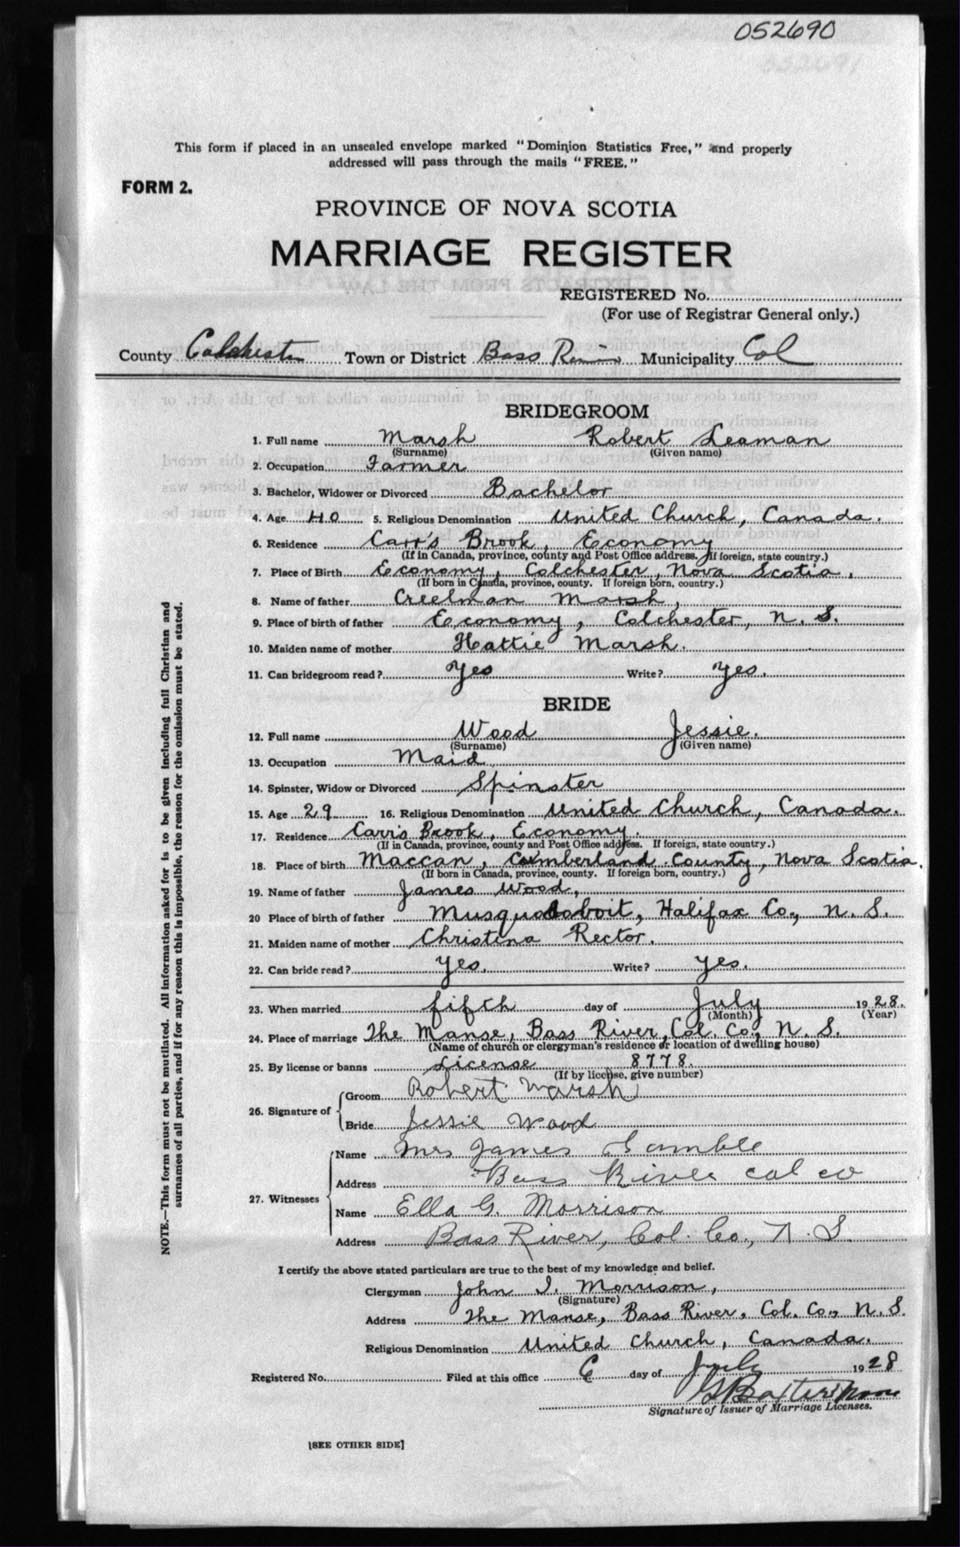 052690
This form if placed in an unsealed envelope marked "Dominion Statistics Free," and properly
addressed will pass through the mails "FREE."
FORM 2.
PROVINCE OF NOVA SCOTIA
MARRIAGE REGISTER
REGISTERED No.
(For use of Registrar General only.)
County Colchester Town or District Bass River Municipality Col
BRIDEGROOM
1. Full name Marsh Robert Leaman
(Surname) (Given name)
2. Occupation Farmer
3. Bachelor, Widower or Divorced Bachelor
4. Age 40 5. Religious Denomination United Church, Canada.
6. Residence Carr's Brook, Economy
(If in Canada, province, county and Post Office address. If foreign, state country.)
7. Place of Birth Economy, Colchester, Nova Scotia,
(If born in Canada, province, county. If foreign born, country.)
8. Name of father Creelman Marsh,
9. Place of birth of father Economy, Colchester, N. S.
10. Maiden name of mother Hattie Marsh.
11. Can bridegroom read? Yes Write? Yes.
BRIDE
12. Full name Wood Jessie.
(Surname) (Given name)
13. Occupation Maid
14. Spinster, Widow or Divorced Spinster
15. Age 29 16. Religious Denomination United Church, Canada.
17. Residence Carr's Brook, Economy.
(If in Canada, province, county and Post Office address. If foreign, state country.)
18. Place of birth Maccan, Cumberland County, Nova Scotia.
(If born in Canada, province, county. If foreign born, country.)
19. Name of father James Wood,
20 Place of birth of father Musquodoboit, Halifax Co., N. S.
21. Maiden name of mother Christina Rector.
22. Can bride read? Yes. Write? Yes.
23. When married fifth day of July 1928.
(Month) (Year)
24. Place of marriage The Manse, Bass River, Col. Co., N. S.
(Name of church or clergyman's residence or location of dwelling house)
25. By license or banns License 8778.
(If by license, give number)
26. Signature of Groom Robert Marsh
Bride Jessie Wood
27. Witnesses Name Mrs James Gamble
Address Bass River Col Co
Name Ella G. Morrison
Address Bass River, Col. Co., N. S.
I certify the above stated particulars are true to the best of my knowledge and belief.
Clergyman John I. Morrison,
(Signature)
Address The Manse, Bass River, Col. Co., N. S.
Religious Denomination United Church, Canada.
Registered No. Filed at this office 6 day of July 1928
Signature of Issuer of Marriage Licenses.
[SEE OTHER SIDE]
NOTE.—This form must not be mutilated. All information asked for is to be given including full Christian and
surnames of all parties, and if for any reason this is impossible, the reason for the omission must be stated.